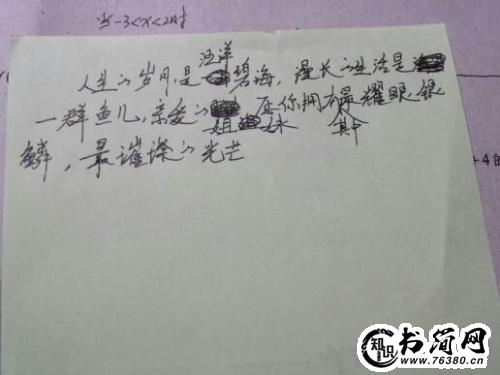 当-3<x<2时
人生的岁月,是汪洋碧海,漫长的生活是
一群鱼儿,亲爱的姐妹 在你拥有最耀眼银
鳞,最璀璨的光芒
其中
+4的
知识
书简网
www.76380.cn